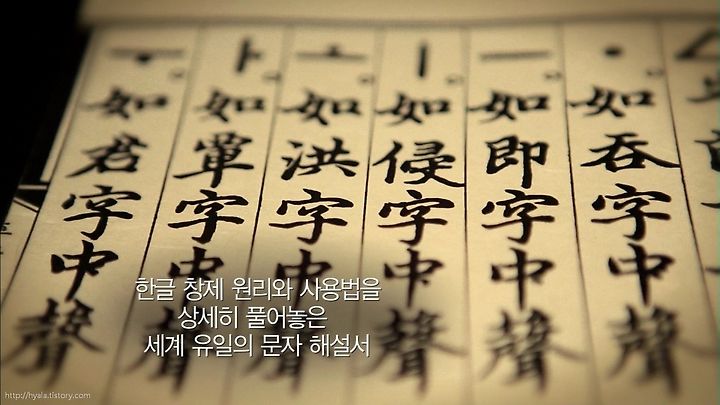 ㆍ如呑字中聲
ㅡ如即字中聲
ㅣ如侵字中聲
ㅗ如洪字中聲
ㅏ如覃字中聲
ㅜ如君字中聲
한글 창제 원리와 사용법을
상세히 풀어놓은
세계 유일의 문자 해설서
http://hyala.tistory.com